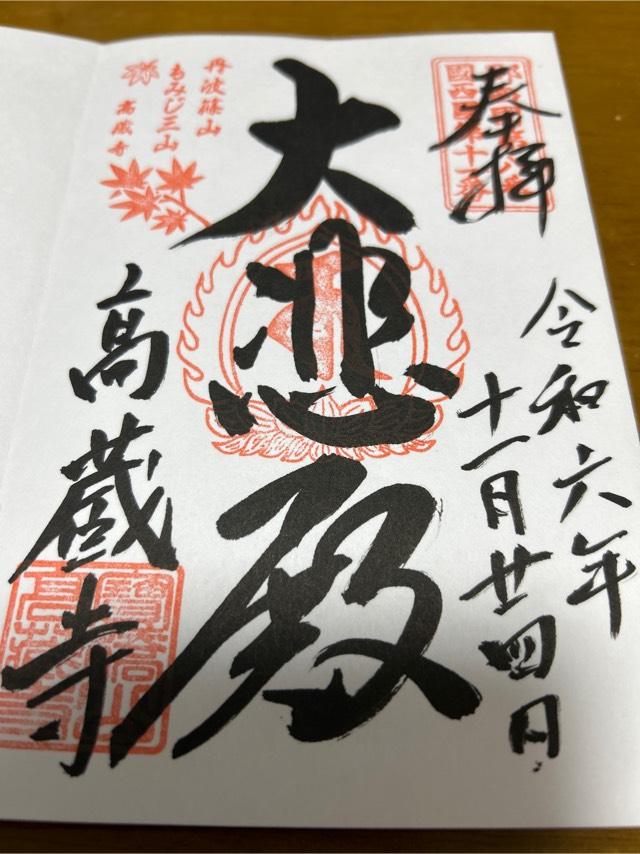 奉拝
令和六年
十一月廿四日
大悲殿
丹波篠山
もみじ三山
高蔵寺
高蔵寺